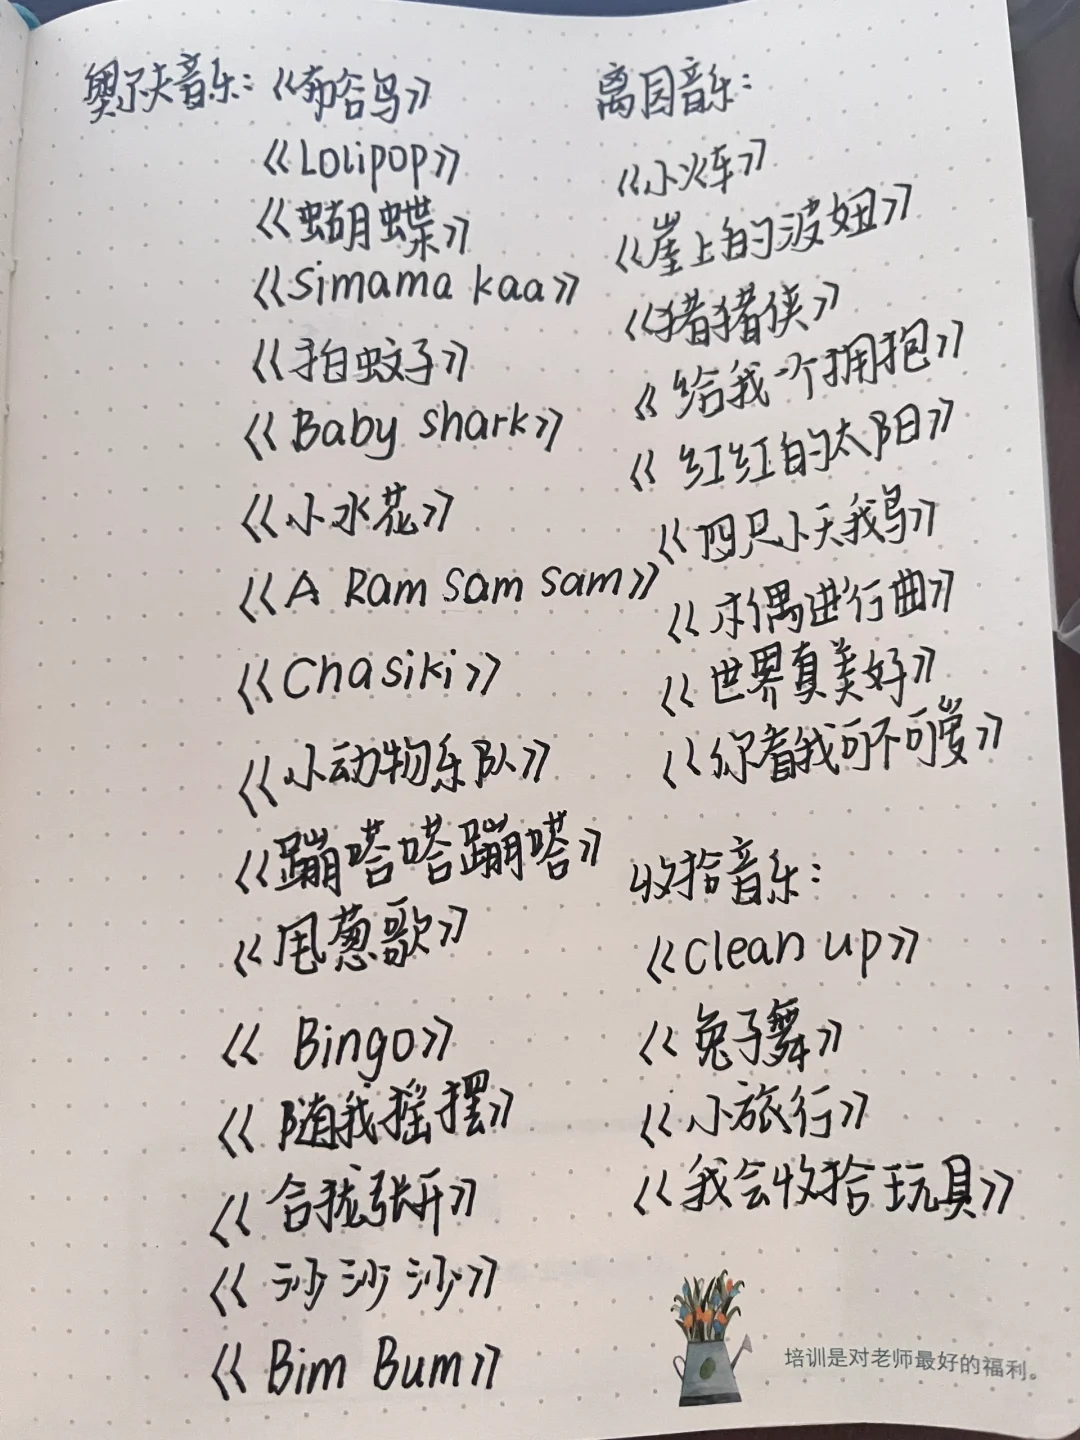 奥尔夫音乐：《布谷鸟》
《Lolipop》
《蝴蝶》
《Simama kaa》
《拍蚊子》
《Baby shark》
《小水花》
《A Ram Sam Sam》
《Chasiki》
《小动物乐队》
《蹦嗒嗒蹦嗒》
《甩葱歌》
《Bingo》
《随我摇摆》
《合拢张开》
《沙沙沙》
《Bim Bum》
离园音乐：
《小火车》
《崖上的波妞》
《猪猪侠》
《给我一个拥抱》
《红红的太阳》
《四只小天鹅》
《木偶进行曲》
《世界真美好》
《你看我可不可爱》
收拾音乐：
《clean up》
《兔子舞》
《小旅行》
《我会收拾玩具》
培训是对老师最好的福利。